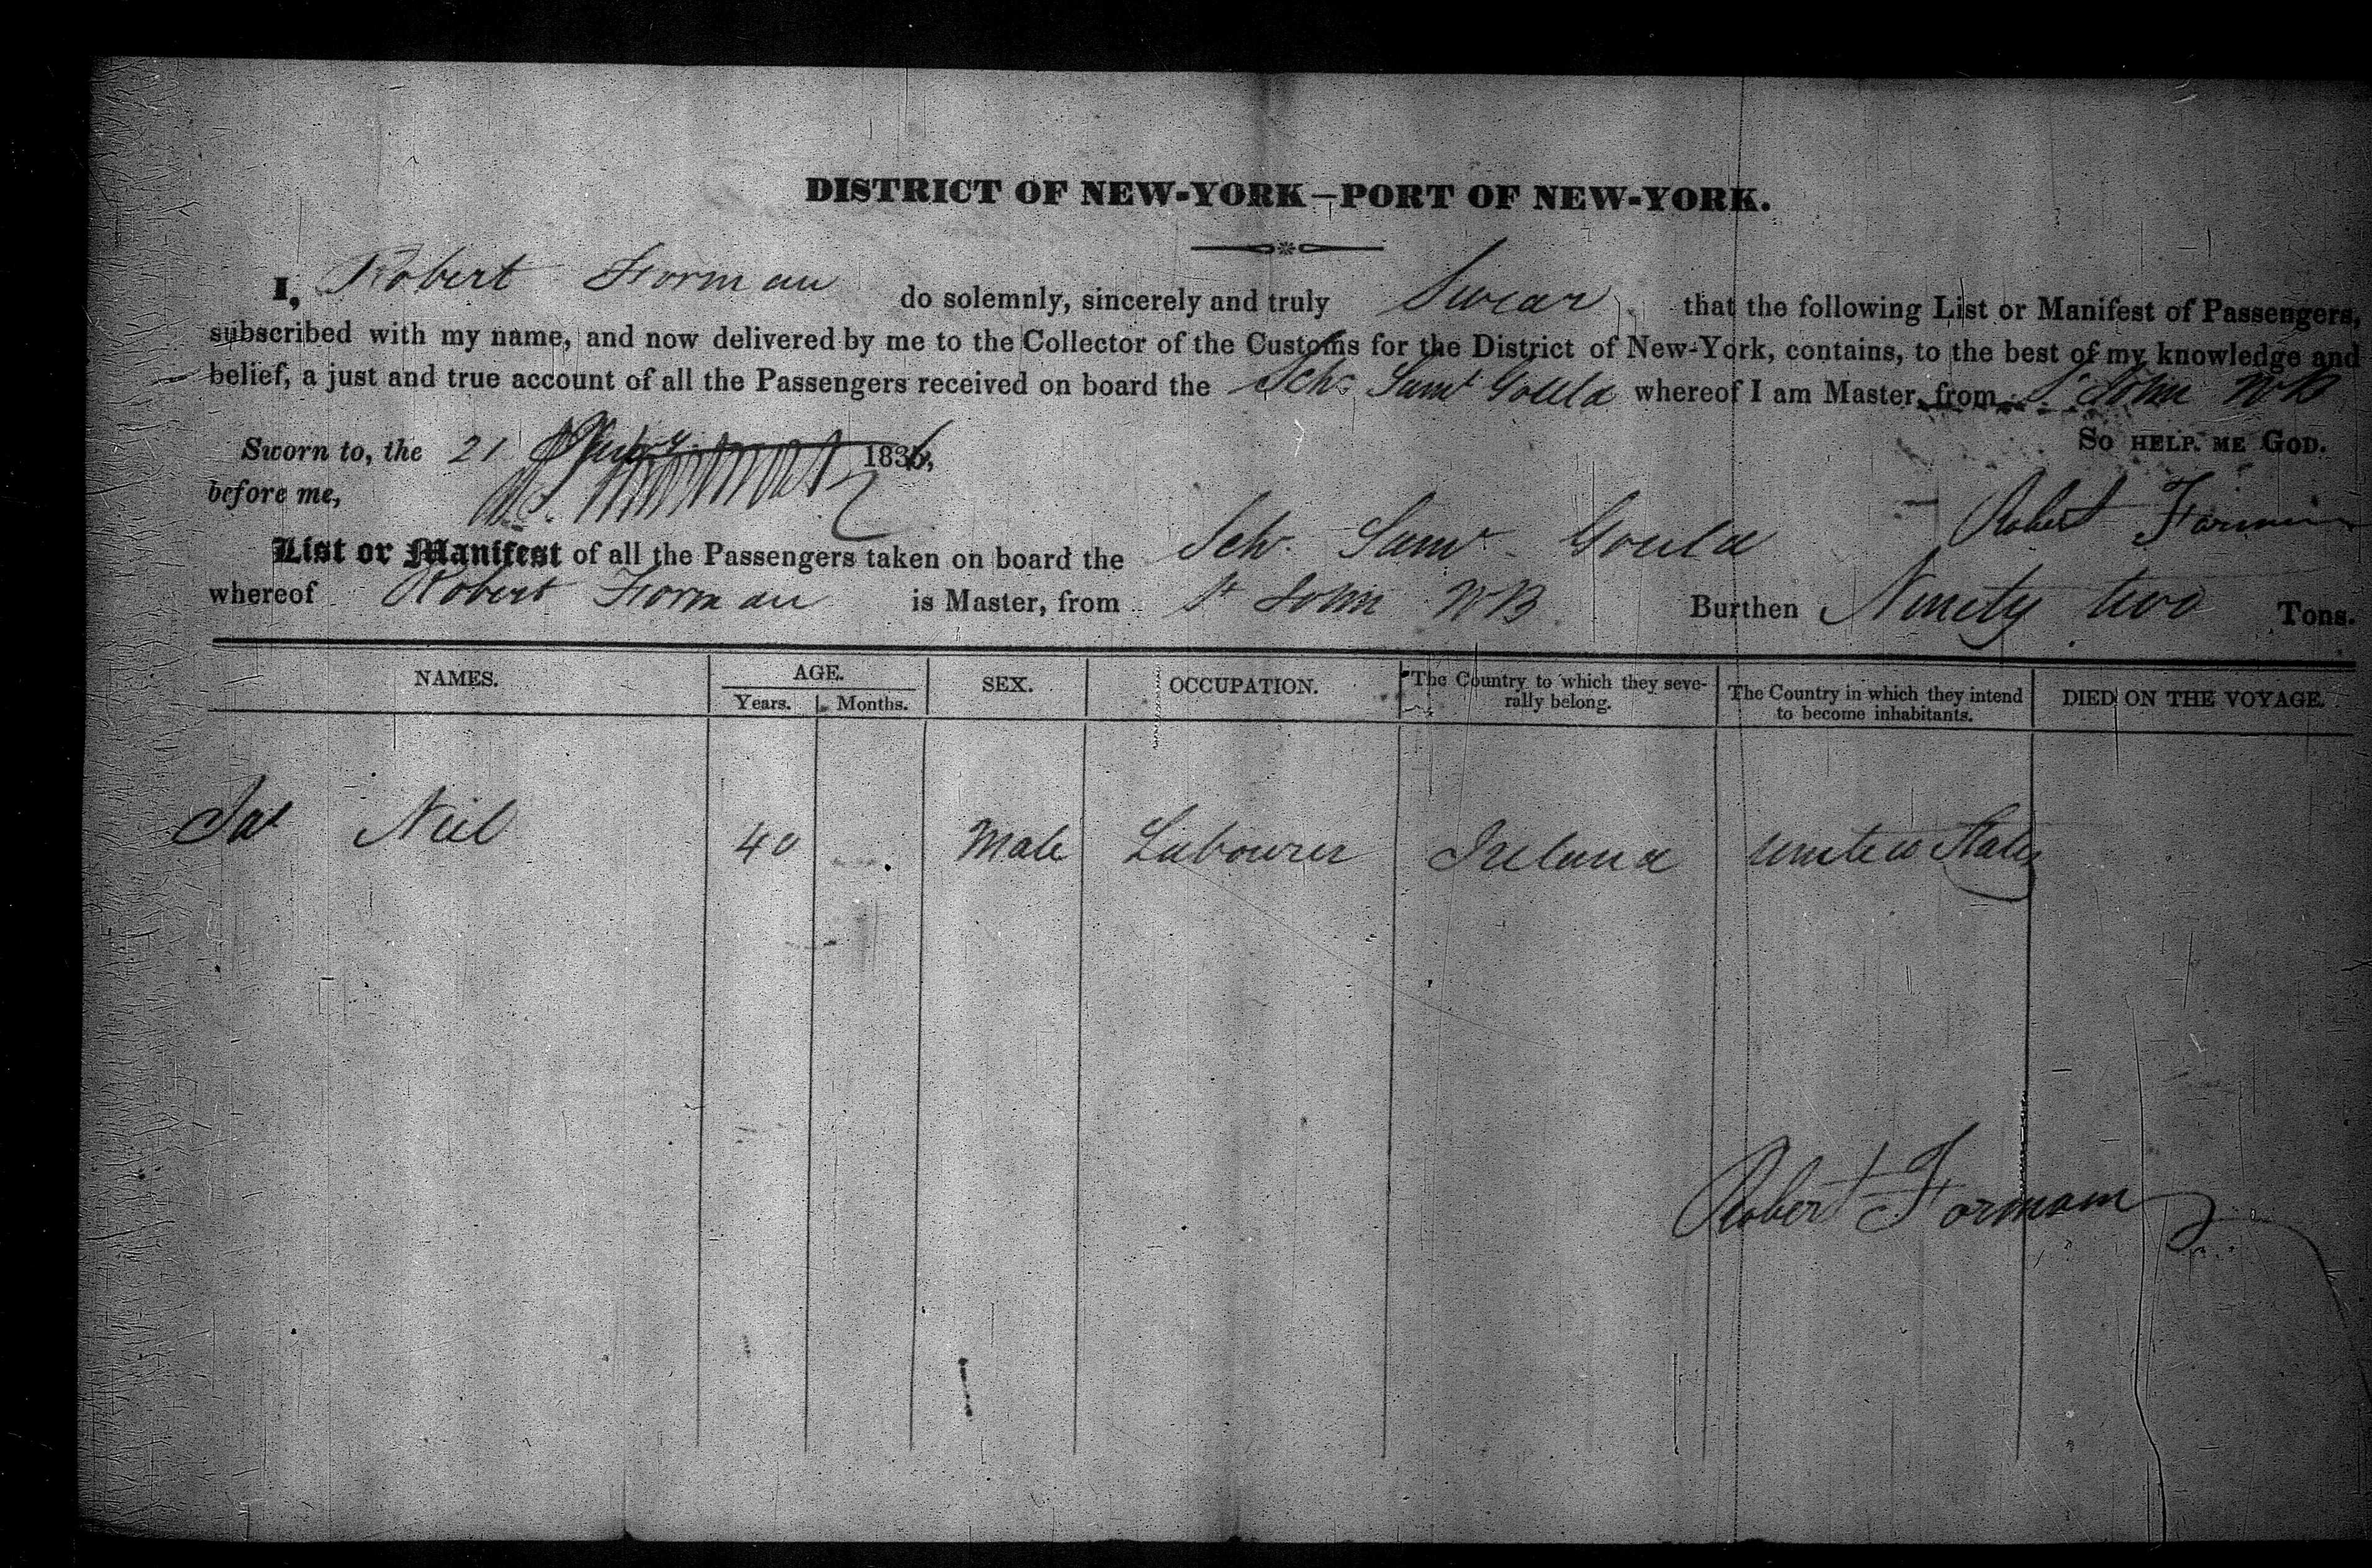 DISTRICT OF NEW-YORK—PORT OF NEW-YORK.
I, Robert Forman do solemnly, sincerely and truly Swear that the following List or Manifest of Passengers,
subscribed with my name, and now delivered by me to the Collector of the Customs for the District of New-York, contains, to the best of my knowledge and
belief, a just and true account of all the Passengers received on board the Sch. Saml Gould whereof I am Master, from St John NB
So HELP ME GOD.
Sworn to, the 21 1836,
before me,
Robert Forman
List or Manifest of all the Passengers taken on board the Sch. Saml Gould
whereof Robert Forman is Master, from St John NB Burthen Ninety two Tons.
NAMES. AGE. SEX. OCCUPATION. The Country to which they seve-rally belong. The Country in which they intend to become inhabitants. DIED ON THE VOYAGE.
Years. Months.
Jas Neil 40 Male Labourer Ireland United States
Robert Formam